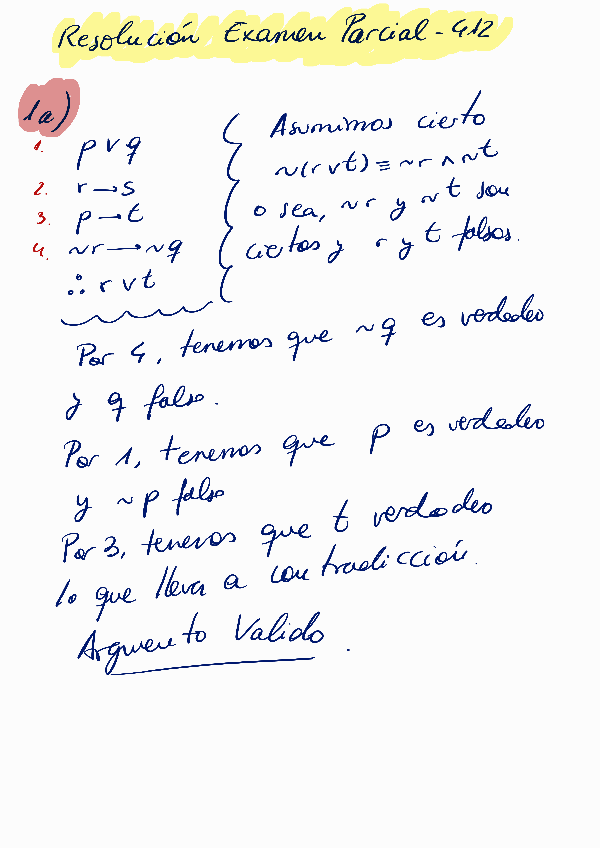 Resolución Examen Parcial - 412
1a)
1. p ∨ q
2. r → s
3. p → t
4. ~r → ~q
∴ r ∨ t
Asumimos cierto
~(r ∨ t) ≡ ~r ∧ ~t
o sea, ~r y ~t son
ciertos y r y t falsos.
Por 4, tenemos que ~q es verdadero
y q falso.
Por 1, tenemos que p es verdadero
y ~p falso
Por 3, tenemos que t verdadero
lo que lleva a contradicción.
Argumento Valido.